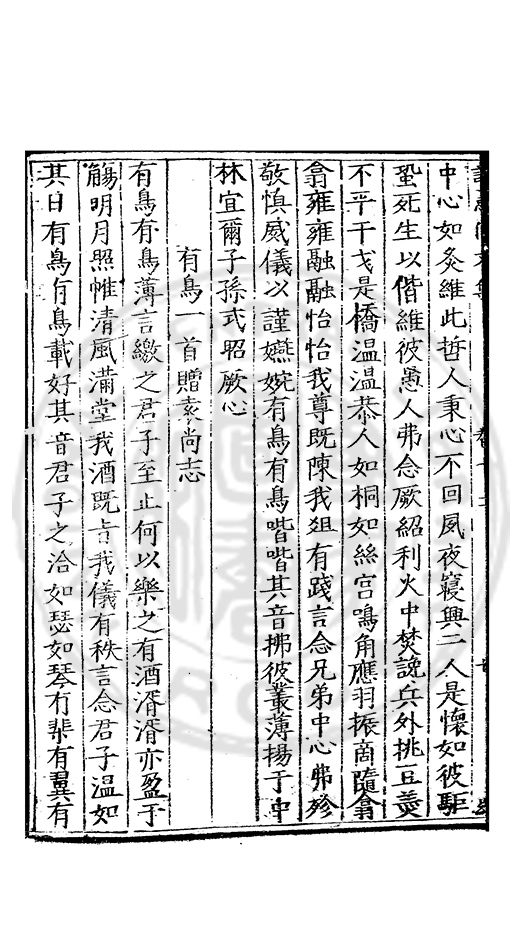 中心如灸維此哲人秉心不回夙夜寢興二人是懷如彼駏
蛩死生以偕維彼愚人弗念厥紹利火中焚讒兵外挑豆羹
不平干戈是橋溫溫恭人如桐如絲宮鳴角應羽振商隨翕
翕雍雍融融怡怡我尊既陳我俎有踐言念兄弟中心弗殄
敬慎威儀以謹嬿婉有鳥有鳥喈喈其音拂彼叢薄揚于中
林宜爾子孫式昭厥心
有鳥一首贈袁尚志
有鳥有鳥薄言繳之君子至止何以樂之有酒湑湑亦盈于
觴明月照帷清風滿堂我酒既旨我儀有秩言念君子溫如
其日有鳥有鳥載好其音君子之洽如瑟如琴有棐有翼有